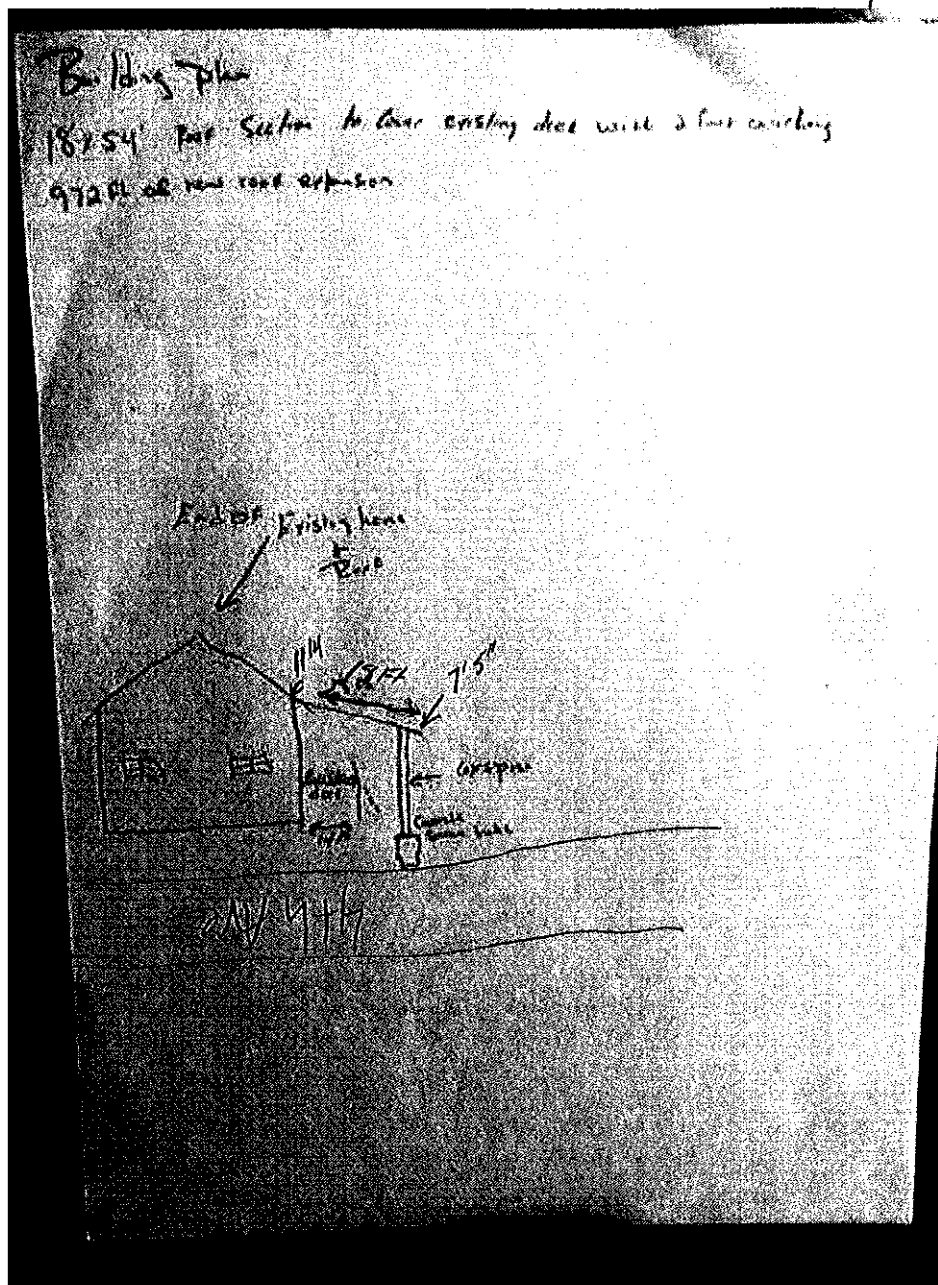 Building plan
18x54' Roof Section to Cover existing deck with 2 foot overhang
972 Ft of new roof expansion
End of Existing home
&
Roof
11'4
18 Ft
7'5"
Existing
deck
6x6 post
Concrete